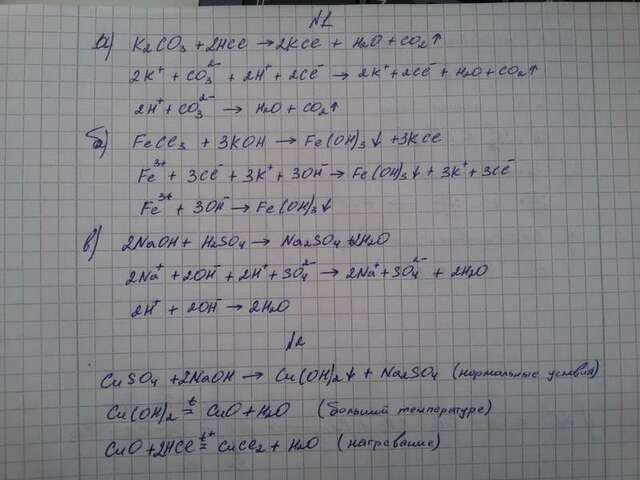 №1
а) K₂CO₃ + 2HCl → 2KCl + H₂O + CO₂↑
2K⁺ + CO₃²⁻ + 2H⁺ + 2Cl⁻ → 2K⁺ + 2Cl⁻ + H₂O + CO₂↑
2H⁺ + CO₃²⁻ → H₂O + CO₂↑
б) FeCl₃ + 3KOH → Fe(OH)₃↓ + 3KCl
Fe³⁺ + 3Cl⁻ + 3K⁺ + 3OH⁻ → Fe(OH)₃↓ + 3K⁺ + 3Cl⁻
Fe³⁺ + 3OH⁻ → Fe(OH)₃↓
в) 2NaOH + H₂SO₄ → Na₂SO₄ + 2H₂O
2Na⁺ + 2OH⁻ + 2H⁺ + SO₄²⁻ → 2Na⁺ + SO₄²⁻ + 2H₂O
2H⁺ + 2OH⁻ → 2H₂O
№2
CuSO₄ + 2NaOH → Cu(OH)₂↓ + Na₂SO₄ (нормальные условия)
Cu(OH)₂ =t CuO + H₂O (большой температуре)
CuO + 2HCl =t⁺ CuCl₂ + H₂O (нагревание)